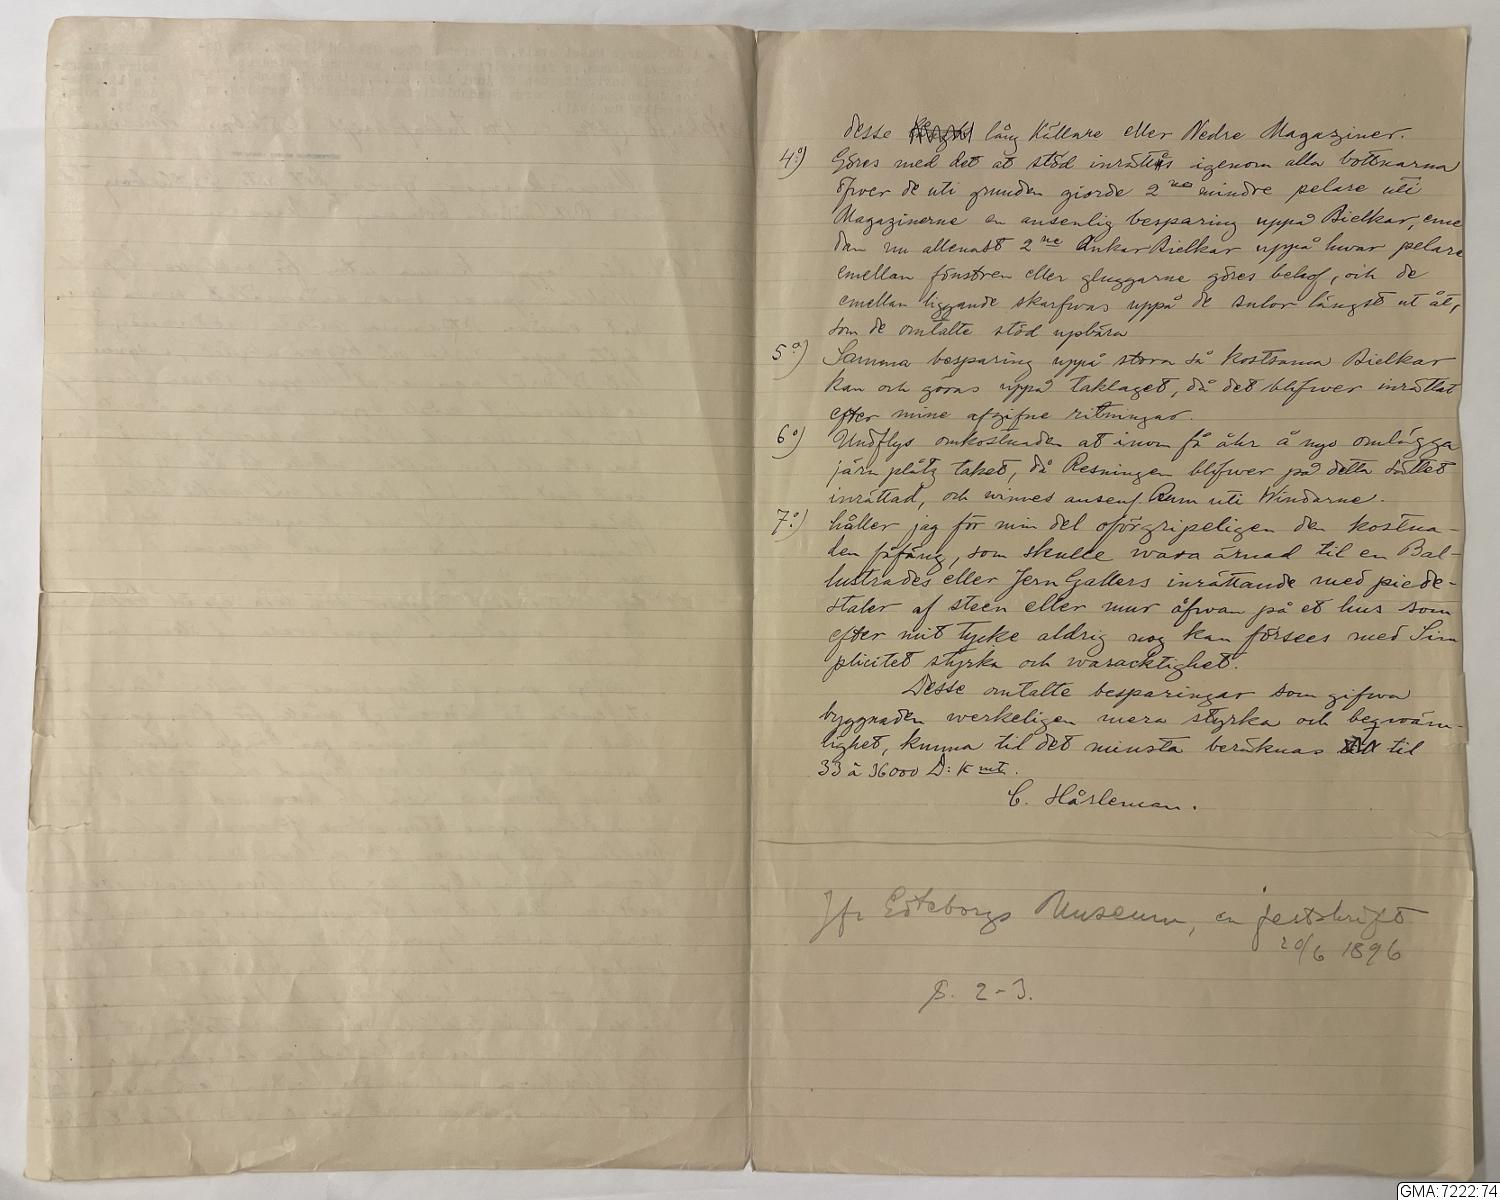 desse lång Källare eller Nedre Magaziner.
4:o) Göres med det at stöd inrättas igenom alla bottnarna
öfwer de uti grunden giorde 2ne mindre pelare uti
Magazinerne en ansenlig besparing uppå Bielkar, eme
dan nu allenast 2ne Ankar Bielkar uppå hwar pelare
emellan fönstren eller gluggarne göres behof, och de
emellan liggande skarfwas uppå de sulor långst ut åt,
som de omtalte stöd upbära
5:o) Samma besparing uppå stora så kostsama Bielkar
kan och göras uppå taklaget, då det blifwer inrättat
efter mine afgifne ritningar.
6:o) Undflys omkostnaden at inom få åhr å nyo omlägga
järn plåtz taket, då Resningen blifwer på detta sättet
inrättad, och winnes ansenl. Rum uti Windarne.
7:o) håller jag för min del oförgripeligen den kostna-
den fåfäng, som skulle wara ärnad til en Bal-
lustrades eller Jern Gallers inrättande med piede-
staler af steen eller mur åfwan på et hus som
efter mit tycke aldrig nog kan förses med Sim
plicitet styrka och waracktighet.
Desse omtalte besparingar som gifwa
byggnaden werkeligen mera styrka och beqwäm-
lighet, kunna til det minsta beräknas til
33 à 36000 D: K mt.
C. Hårleman.
Jfr Göteborgs Museum, en festskrift
20/6 1896
S. 2-3.
GMA:7222:74